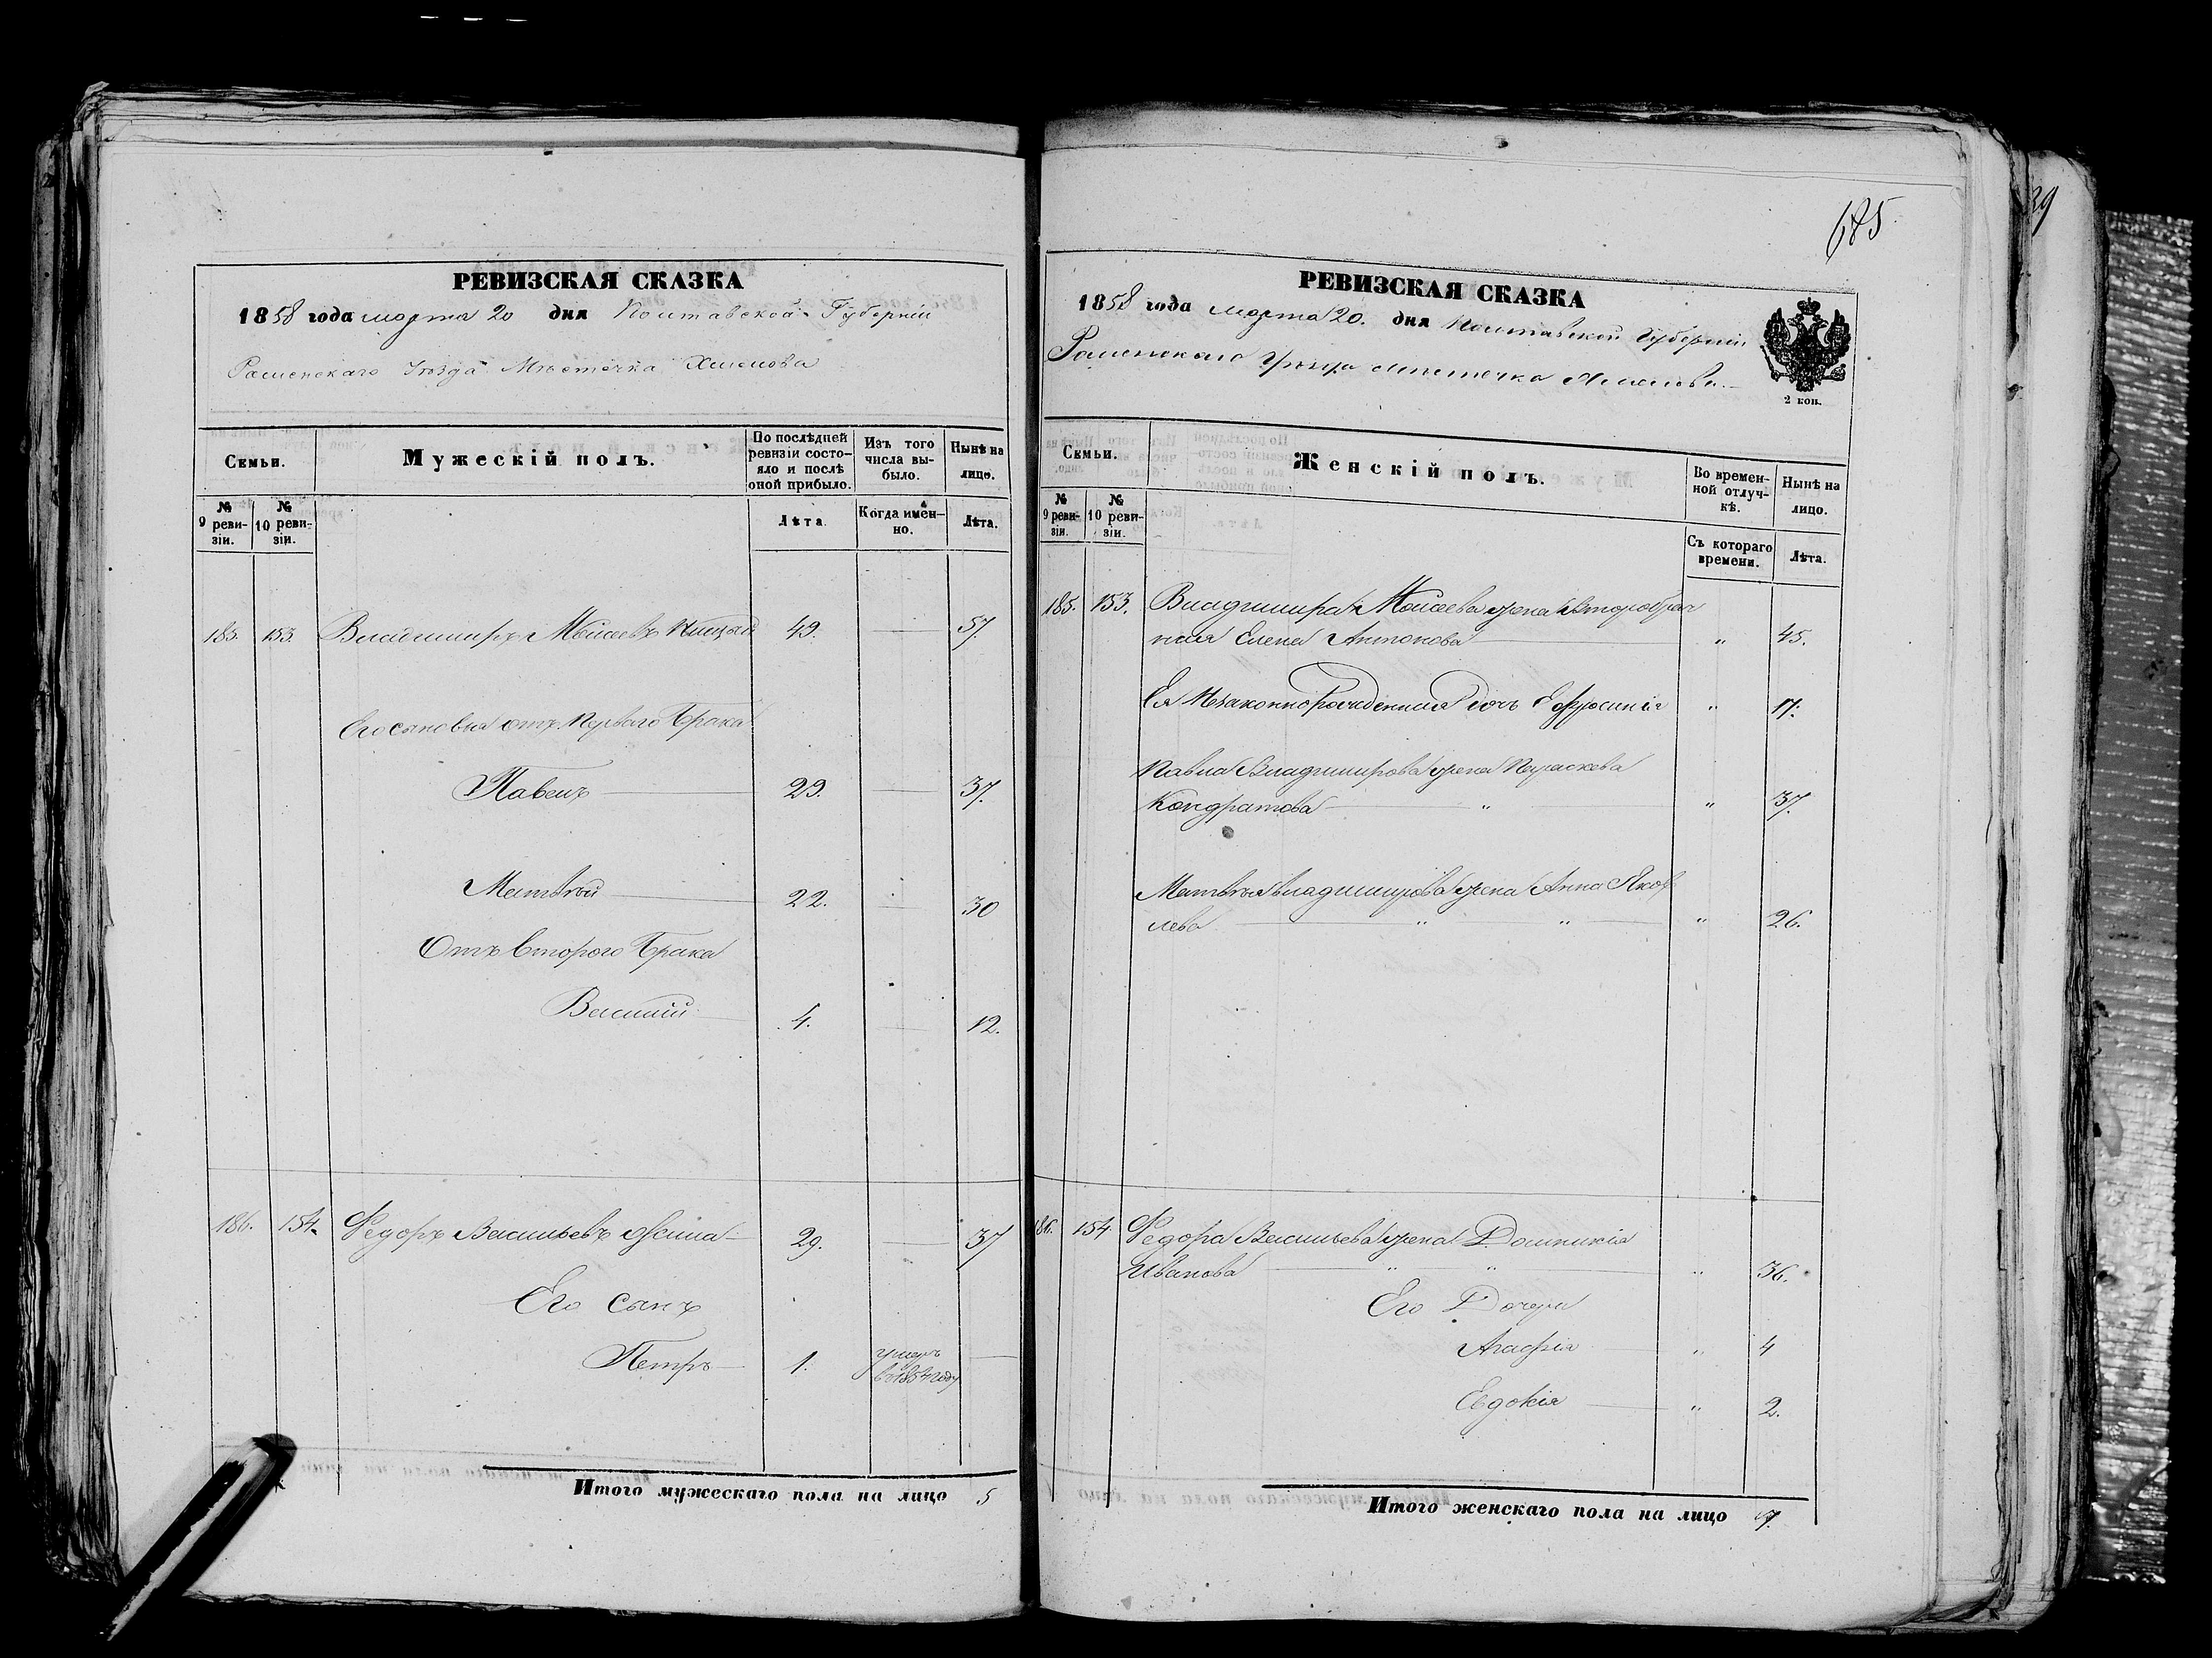 РЕВИЗСКАЯ СКАЗКА
1858 года марта 20 дня Полтавской Губерніи
Роменскаго Уѣзда Мѣстечка Хмелова
Семьи.
Мужескій полъ.
По послѣдней ревизіи состо-
яло и послѣ
оной прибыло.
Изъ того
числа вы-
было.
Нынѣ на
лицо.
№
9 реви-
зіи.
№
10 реви-
зіи.
Лѣта.
Когда имен-
но.
Лѣта.
185. 153. Владимиръ Моисеевъ 49. — 57.
Его сыновья отъ Перваго Брака
Павелъ 29. — 37.
Матвѣй 22. — 30
Отъ Второго Брака
Василій 4. — 12.
186. 154. Федоръ Васильевъ 29. — 37
Его сынъ
Петръ 1. умеръ
въ 1854 году —
Итого мужескаго пола на лицо 5
685.
39
РЕВИЗСКАЯ СКАЗКА
1858 года марта 20. дня Полтавской Губерніи
Роменскаго Уѣзда Мѣстечка Хмелова
2 коп.
Семьи.
Женскій полъ.
Во времен-
ной отлуч-
кѣ.
Нынѣ на
лицо.
№
9 реви-
зіи.
№
10 реви-
зіи.
Съ котораго
времени.
Лѣта.
185. 153. Владимира Моисеева жена второбрач
ная Елена Антонова " 45.
Ея Незаконнорожденная дочь Ефросинія " 17.
Павла Владимирова жена Параскева
Кондратова " " 37.
Матвѣя Владимирова жена Анна Яков
лева " " " 26.
186. 154 Федора Васильева жена Домникія
Иванова " " " 36.
Его Дочери
Агафія " 4
Евдокія " 2.
Итого женскаго пола на лицо 7.